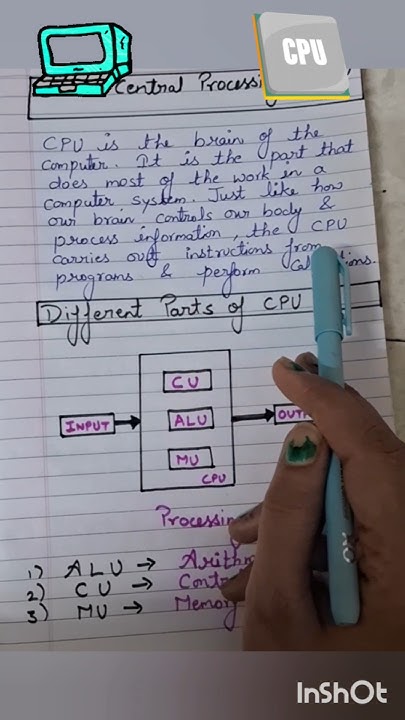 CPU
Central Processing
CPU is the brain of the
computer. It is the part that
does most of the work in a
computer system. Just like how
our brain controls our body &
process information, the CPU
carries out instructions from
programs & perform
Different Parts of CPU
CU
INPUT
ALU
MU
CPU
Processing
1) ALU →
2) CU →
3) MU → Memory
InShOt